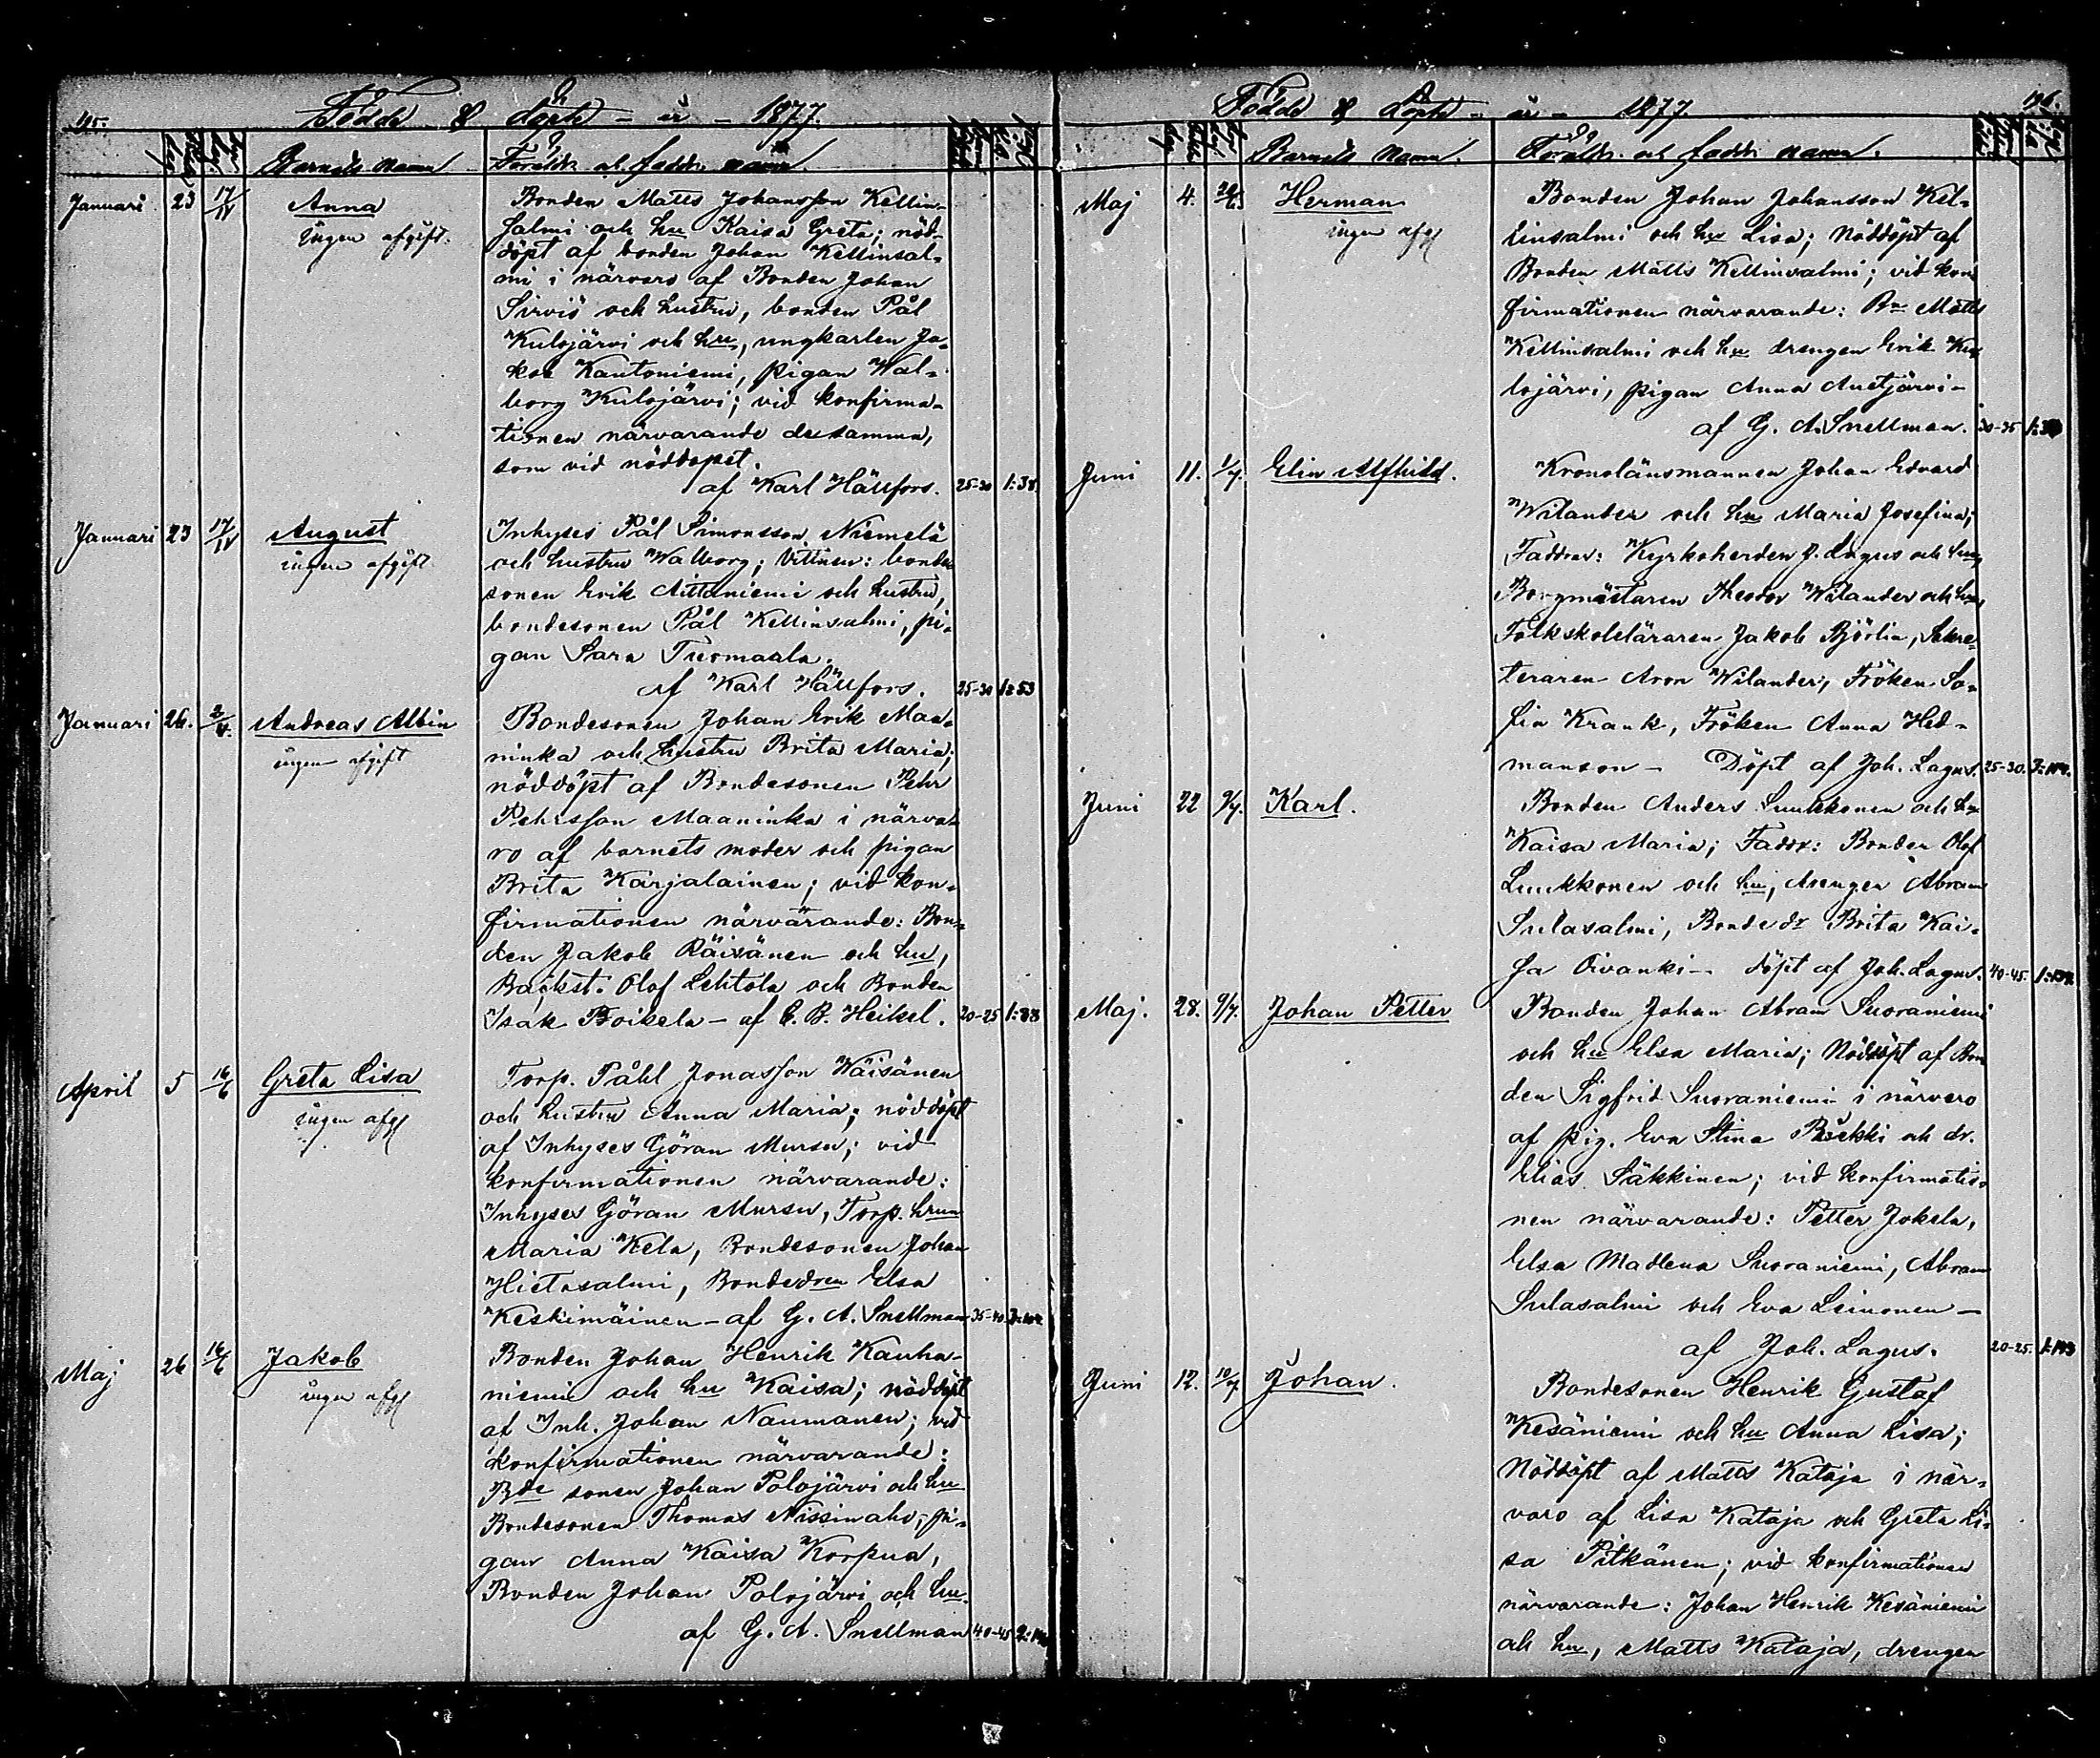 195.
Födde & döpte år 1877.
Barnets namn Föräldr. och faddr. namn.
Januari 23 17/IV Anna Bonden Matts Johansson Kellin-
ingen afgift. salmi och hu Kaisa Greta; nöd-
döpt af bonden Johan Kellinsal-
mi i närvaro af Bonden Johan
Sirviö och hustru, bonden Pål
Kulojärvi och hu, ungkarlen Ja-
kob Kantoniemi, pigan Wal-
borg Kulojärvi; vid konfirma-
tionen närvarande desamma,
som vid nöddopet.
af Karl Hällfors. 25-30 1:38.
Januari 23 17/IV August Inhyses Pål Simonsson Niemelä
ingen afgift och hustru Walborg; Vittnen: bonde
sonen Erik Aittaniemi och hustru,
bondesonen Pål Kellinsalmi, pi-
gan Sara Tuomaala.
af Karl Hällfors. 25-30 1:53
Januari 26. Andreas Albin Bondesonen Johan Erik Maa-
ingen afgift ninka och hustru Brita Maria;
nöddöpt af Bondesonen Pehr
Pehrsson Maaninka i närva-
ro af barnets moder och pigan
Brita Karjalainen; vid kon-
firmationen närvarande: Bon-
den Jakob Räisänen och hu,
Backst. Olof Lehtola och Bonden
Isak Poikela - af C. B. Heikel. 20-25 1:88
April 5 16/6 Greta Lisa Torp. Påhl Jonasson Wäisänen
ingen afg och hustru Anna Maria; nöddöpt
af Inhyses Göran Mursu; vid
konfirmationen närvarande:
Inhyses Göran Mursu, Torp. hrun
Maria Kela, Bondesonen Johan
Hietasalmi, Bondedren Elsa
Keskimäinen - af G. A. Snellman 35-40
Maj 26 16/6 Jakob Bonden Johan Henrik Kauha-
ingen afg niemi och hu Kaisa; nöddöpt
af Inh. Johan Naumanen; vid
konfirmationen närvarande:
Bde sonen Johan Polojärvi och hu
Bondesonen Thomas Nissinaho, pi-
gan Anna Kaisa Korpua,
Bonden Johan Polojärvi och hu.
af G. A. Snellman 40-45
196.
Födde & döpte år 1877.
Barnets Namn. Föräldr. och faddr. namn.
Maj 4. Herman Bonden Johan Johansson Kel-
ingen afg linsalmi och hu Lisa; Nöddöpt af
Bonden Matts Kellinsalmi; vid kon
firmationen närvarande: Bn Matts
Kellinsalmi och hu drengen Erik Ku
lojärvi, pigan Anna Auetjärvi -
af G. A. Snellman. 30-35
Juni 11. 1/7. Elin Alfhild. Kronolänsmannen Johan Edvard
Wilander och hu Maria Josefina;
Faddrar: Kyrkoherden J. Lagus och hu,
Borgmästaren Theodor Wilander och hu,
Folkskoleläraren Jakob Björlin, Sekre-
teraren Aron Wilander, Fröken So-
fia Krank, Fröken Anna Hed-
manson - Döpt af Joh. Lagus. 25-30.
Juni 22 9/7. Karl. Bonden Anders Luukkonen och hu
Kaisa Maria; Faddr: Bonden Olof
Luukkonen och hu, drengen Abram
Sulasalmi, Bonde dr Brita Kai-
sa Oivanki - döpt af Joh. Lagus. 40-45.
Maj. 28. 9/7. Johan Petter Bonden Johan Abram Suoraniemi
och hu Elsa Maria; Nöddöpt af Bon
den Sigfrid Suoraniemi i närvaro
af pig. Eva Stina och dr.
Elias Säkkinen; vid konfirmatio-
nen närvarande: Petter Jokela,
Elsa Madlena Suoraniemi, Abram
Sulasalmi och Eva Leinonen -
af Joh. Lagus. 20-25.
Juni 12. 10/7. Johan. Bondesonen Henrik Gustaf
Kesäniemi och hu Anna Lisa;
Nöddöpt af Matts Kataja i när-
varo af Lisa Kataja och Greta Li-
sa Pitkänen; vid konfirmationen
närvarande: Johan Henrik Kesäniemi
och hu, Matts Kataja, drengen